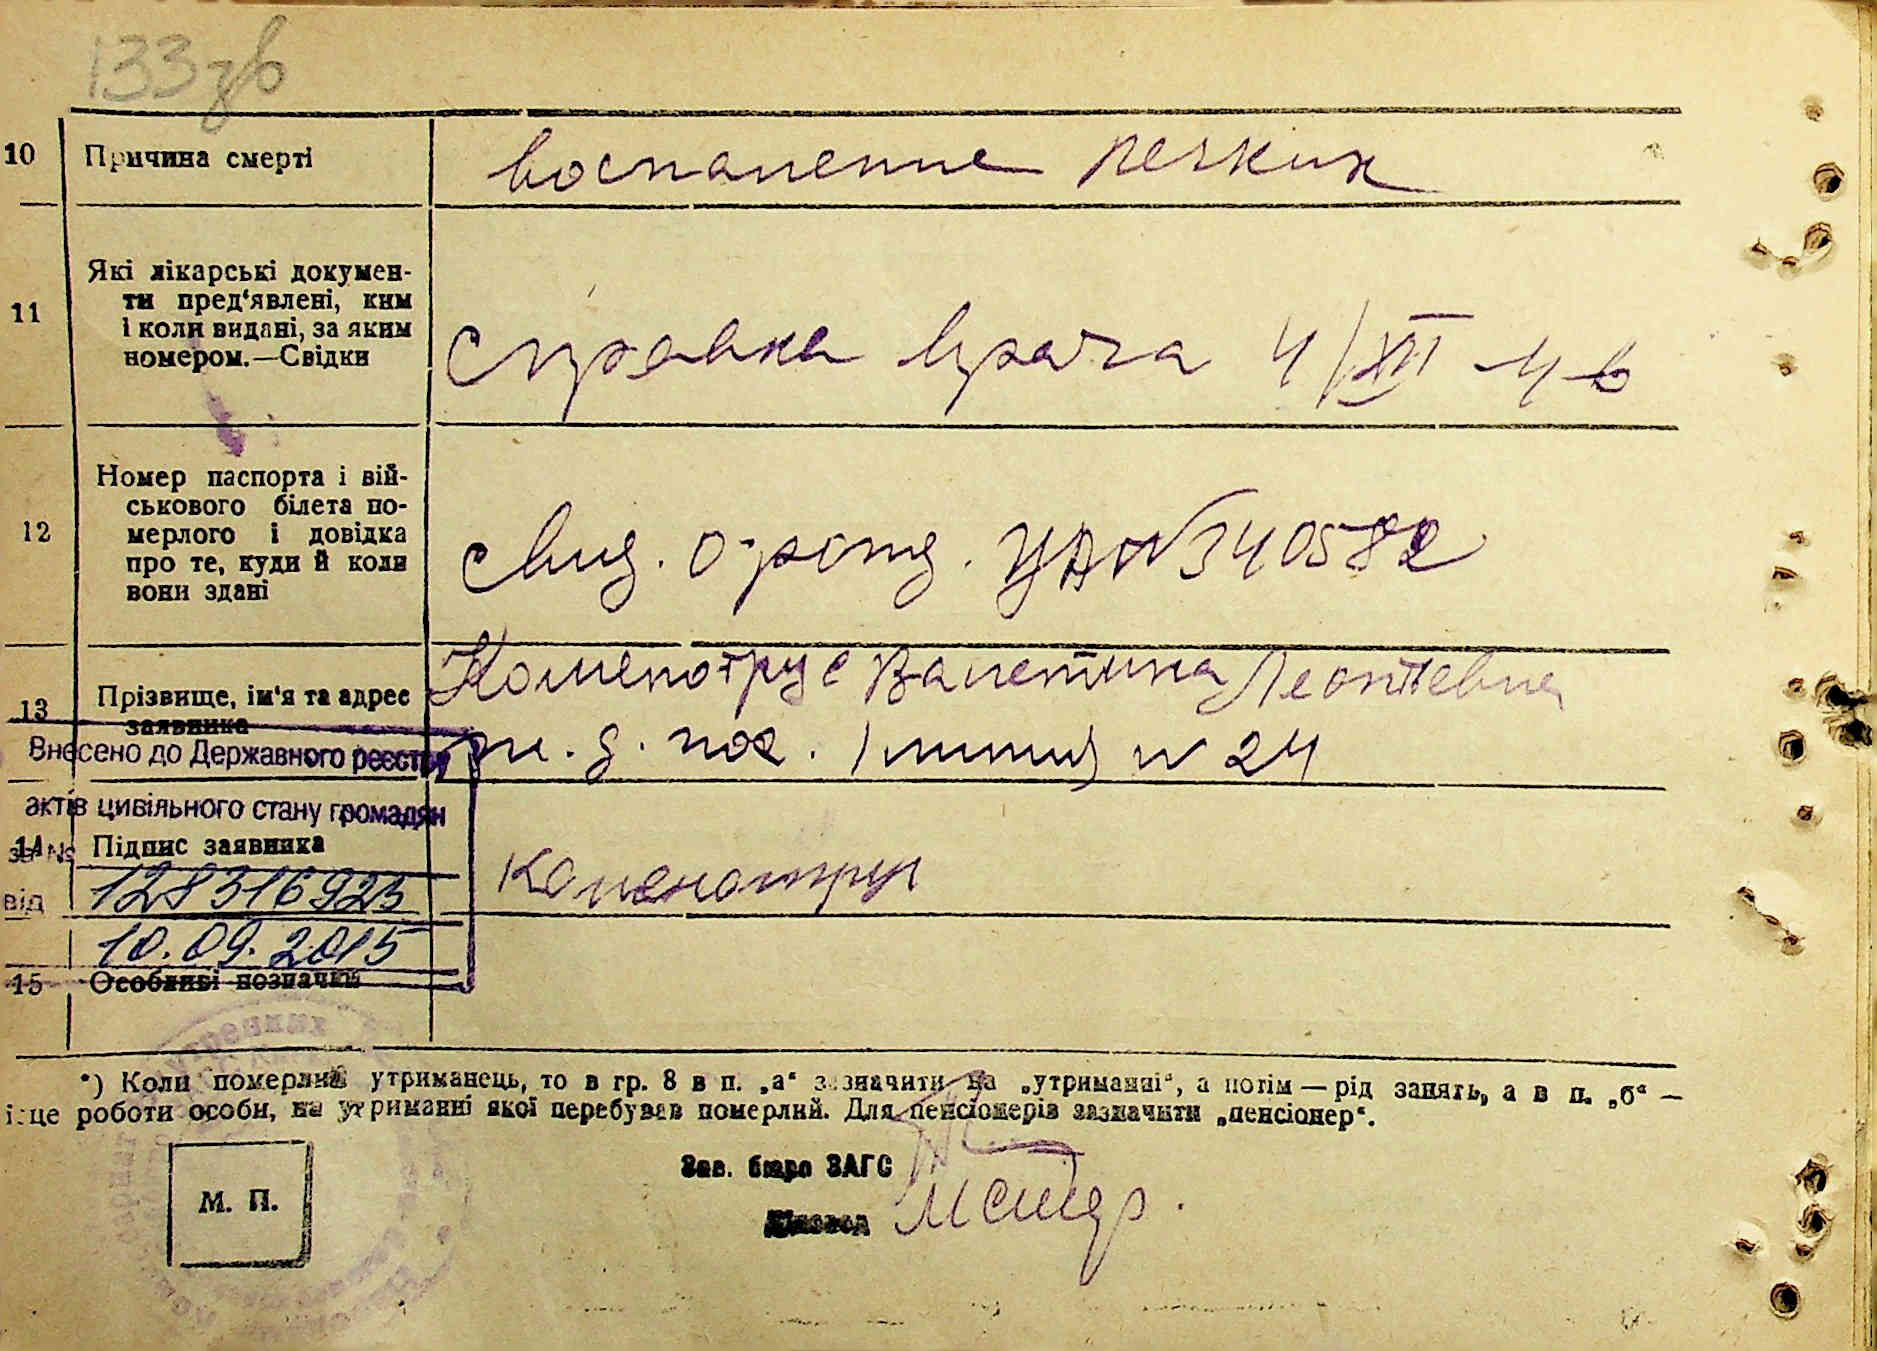 133зв
10 Причина смерті воспаление легких
11 Які лікарські докумен-
ти пред‘явлені, ким
і коли видані, за яким
номером.—Свідки
справка врача 4/XII-46
12 Номер паспорта і вій-
ськового білета по-
мерлого і довідка
про те, куди й коли
вони здані
свид. о рожд. № 340582
13 Прізвище, ім'я та адрес
заявника
Валентина Леонтьевна
ж.д. пос. 1 линия № 24
Внесено до Державного реєстру
актів цивільного стану громадян
за №
14 Підпис заявника
128316923
від
10.09.2015
15 Особливі позначки
*) Коли померлий утриманець, то в гр. 8 в п. „а“ зазначити на „утриманні“, а потім — рід занять, а в п. „б“ —
місце роботи особи, на утриманні якої перебував померлий. Для пенсіонерів зазначити „пенсіонер“.
М. П.
Зав. бюро ЗАГС
Діловод